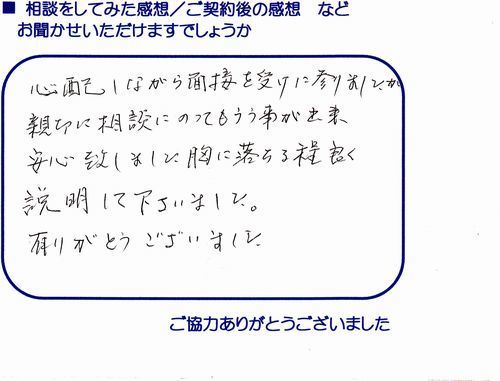 ■ 相談をしてみた感想／ご契約後の感想 など
お聞かせいただけますでしょうか
心配しながら面接を受けに参りましたが
親切に相談にのってもらう事が出来
安心致しました 胸に落ちる程良く
説明して下さいました。
有りがとうございました
ご協力ありがとうございました